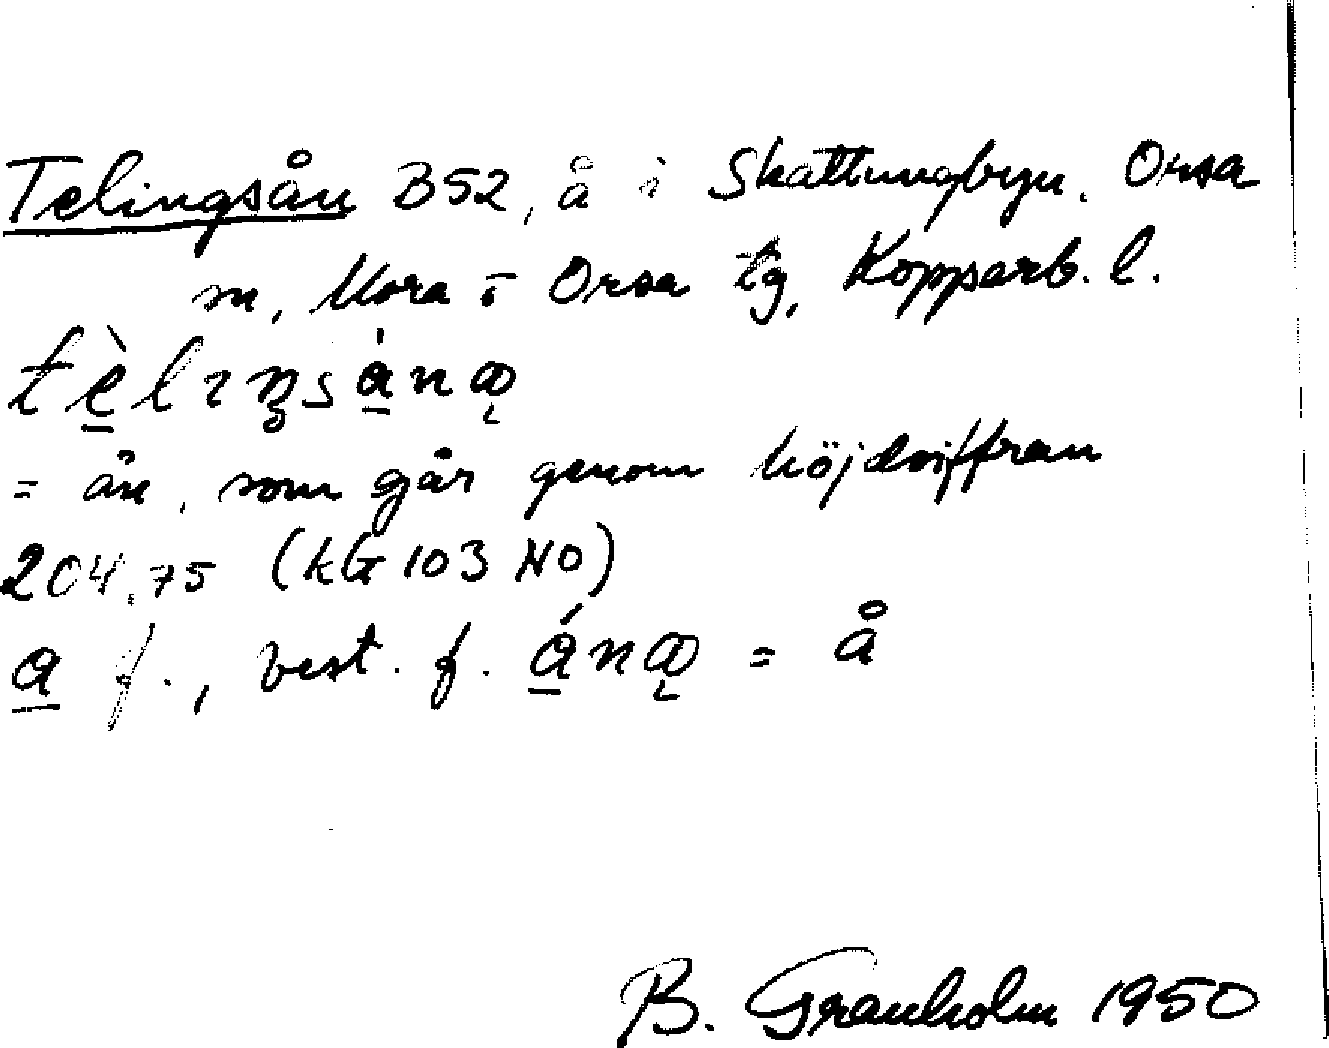 Telingsån B52, å i Skattungbyn. Orsa
m, Mora o Orsa tg, Kopparb. l.
= ån, som går genom höjdsiffran
204,75 (kG 103 NO)
a f., best. f. = å
B. Granholm 1950